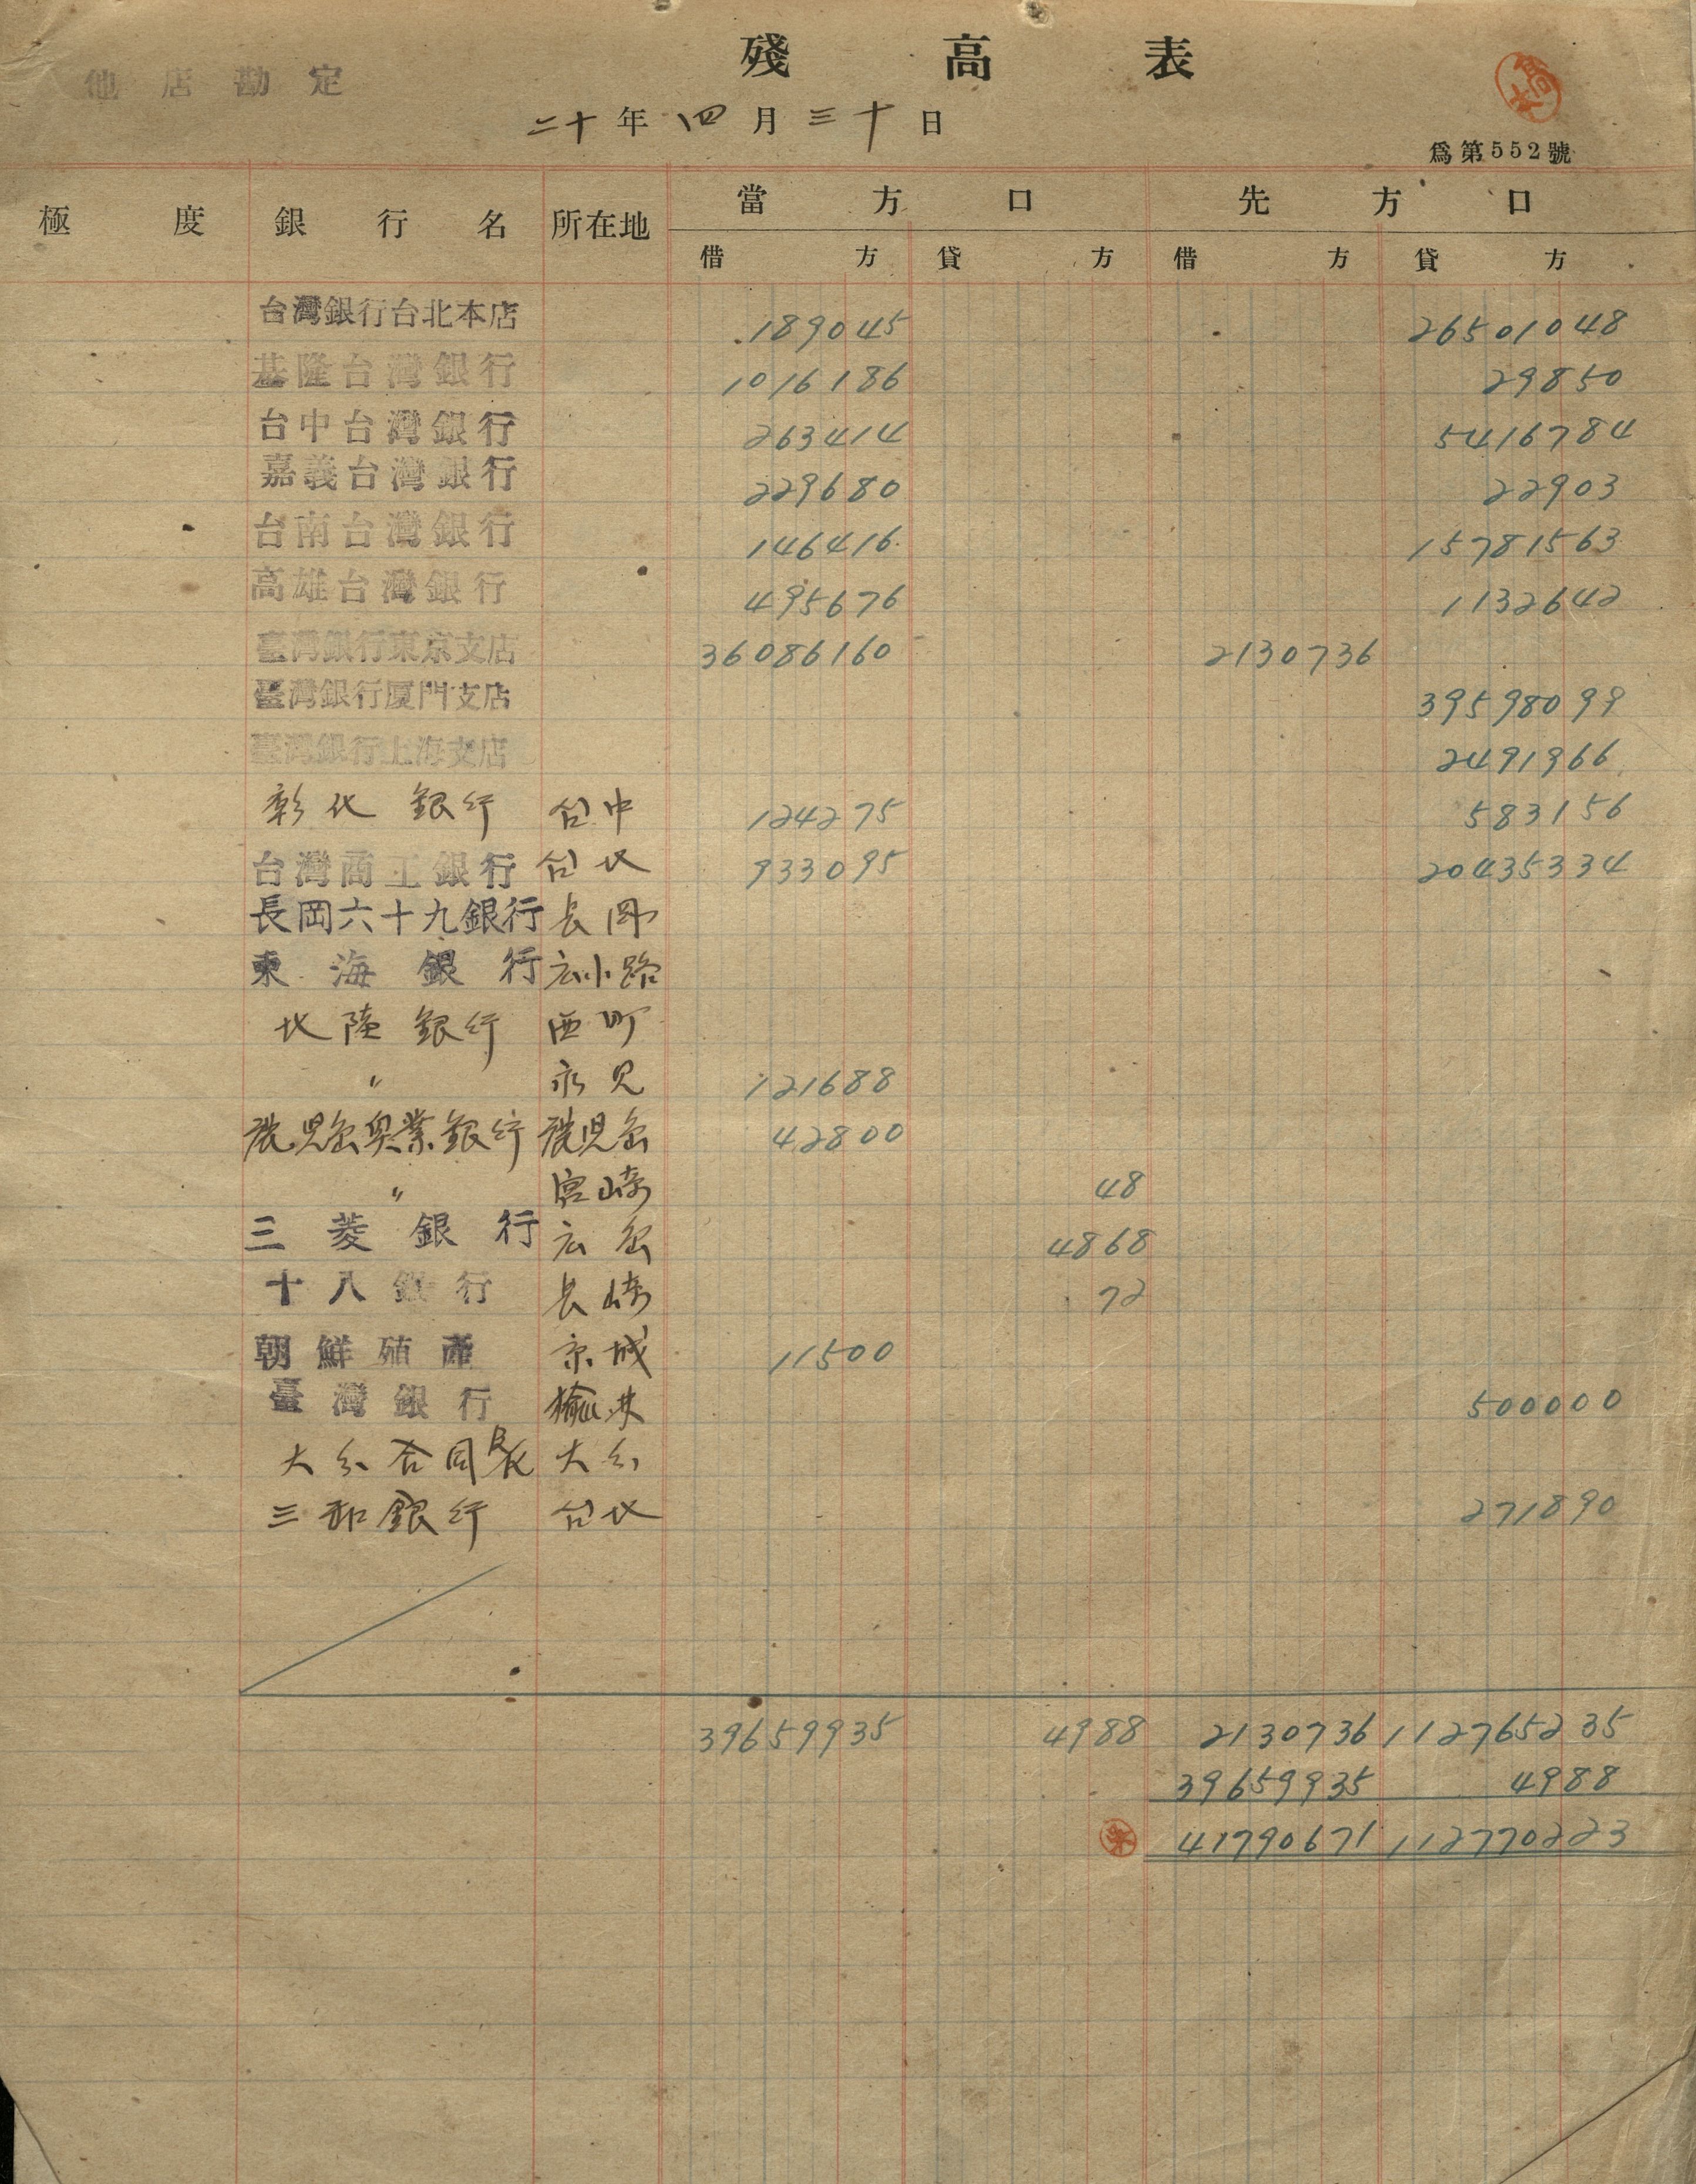 殘高表
他店勘定
二十年四月三十日
高木
爲第552號
極度 銀行名 所在地 當方口 先方口
借方 貸方 借方 貸方
台灣銀行台北本店 189045 26501048
基隆台灣銀行 1016186 29850
台中台灣銀行 263414 5416784
嘉義台灣銀行 229680 22903
台南台灣銀行 146416 15781563
高雄台灣銀行 495676 1132642
臺灣銀行東京支店 36086160 2130736
臺灣銀行厦門支店 39598099
臺灣銀行上海支店 2491966
彰化銀行 台中 124275 583156
台灣商工銀行 台北 933095 20435334
長岡六十九銀行 長岡
東海銀行 広小路
北陸銀行 西町
〃 氷見 121688
鹿児島興業銀行 鹿児島 42800
〃 宮崎 48
三菱銀行 広島 4868
十八銀行 長崎 72
朝鮮殖產 京城 11500
臺灣銀行 500000
大分合同 大分
三和銀行 台北 271890
39659935 4988 2130736 112765235
39659935 4988
41790671 112770223